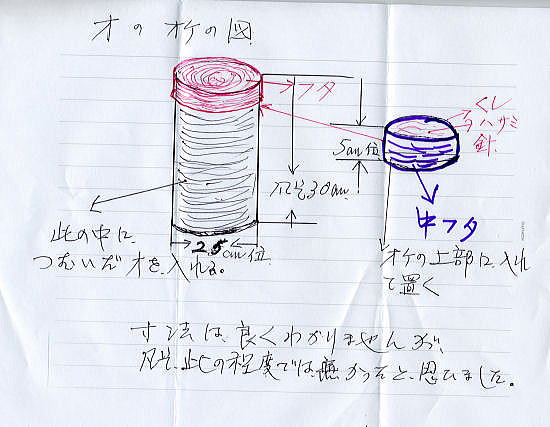 オのオケの図
フタ
くし
ハサミ
針
5cm位
凡そ30cm
中フタ
此の中に
つむいだオを、入れる。
25cm位
オケの上部に、入れ
て置く
寸法は、良くわかりませんが、
凡そ、此の程度では、無かつたと、思ひました。